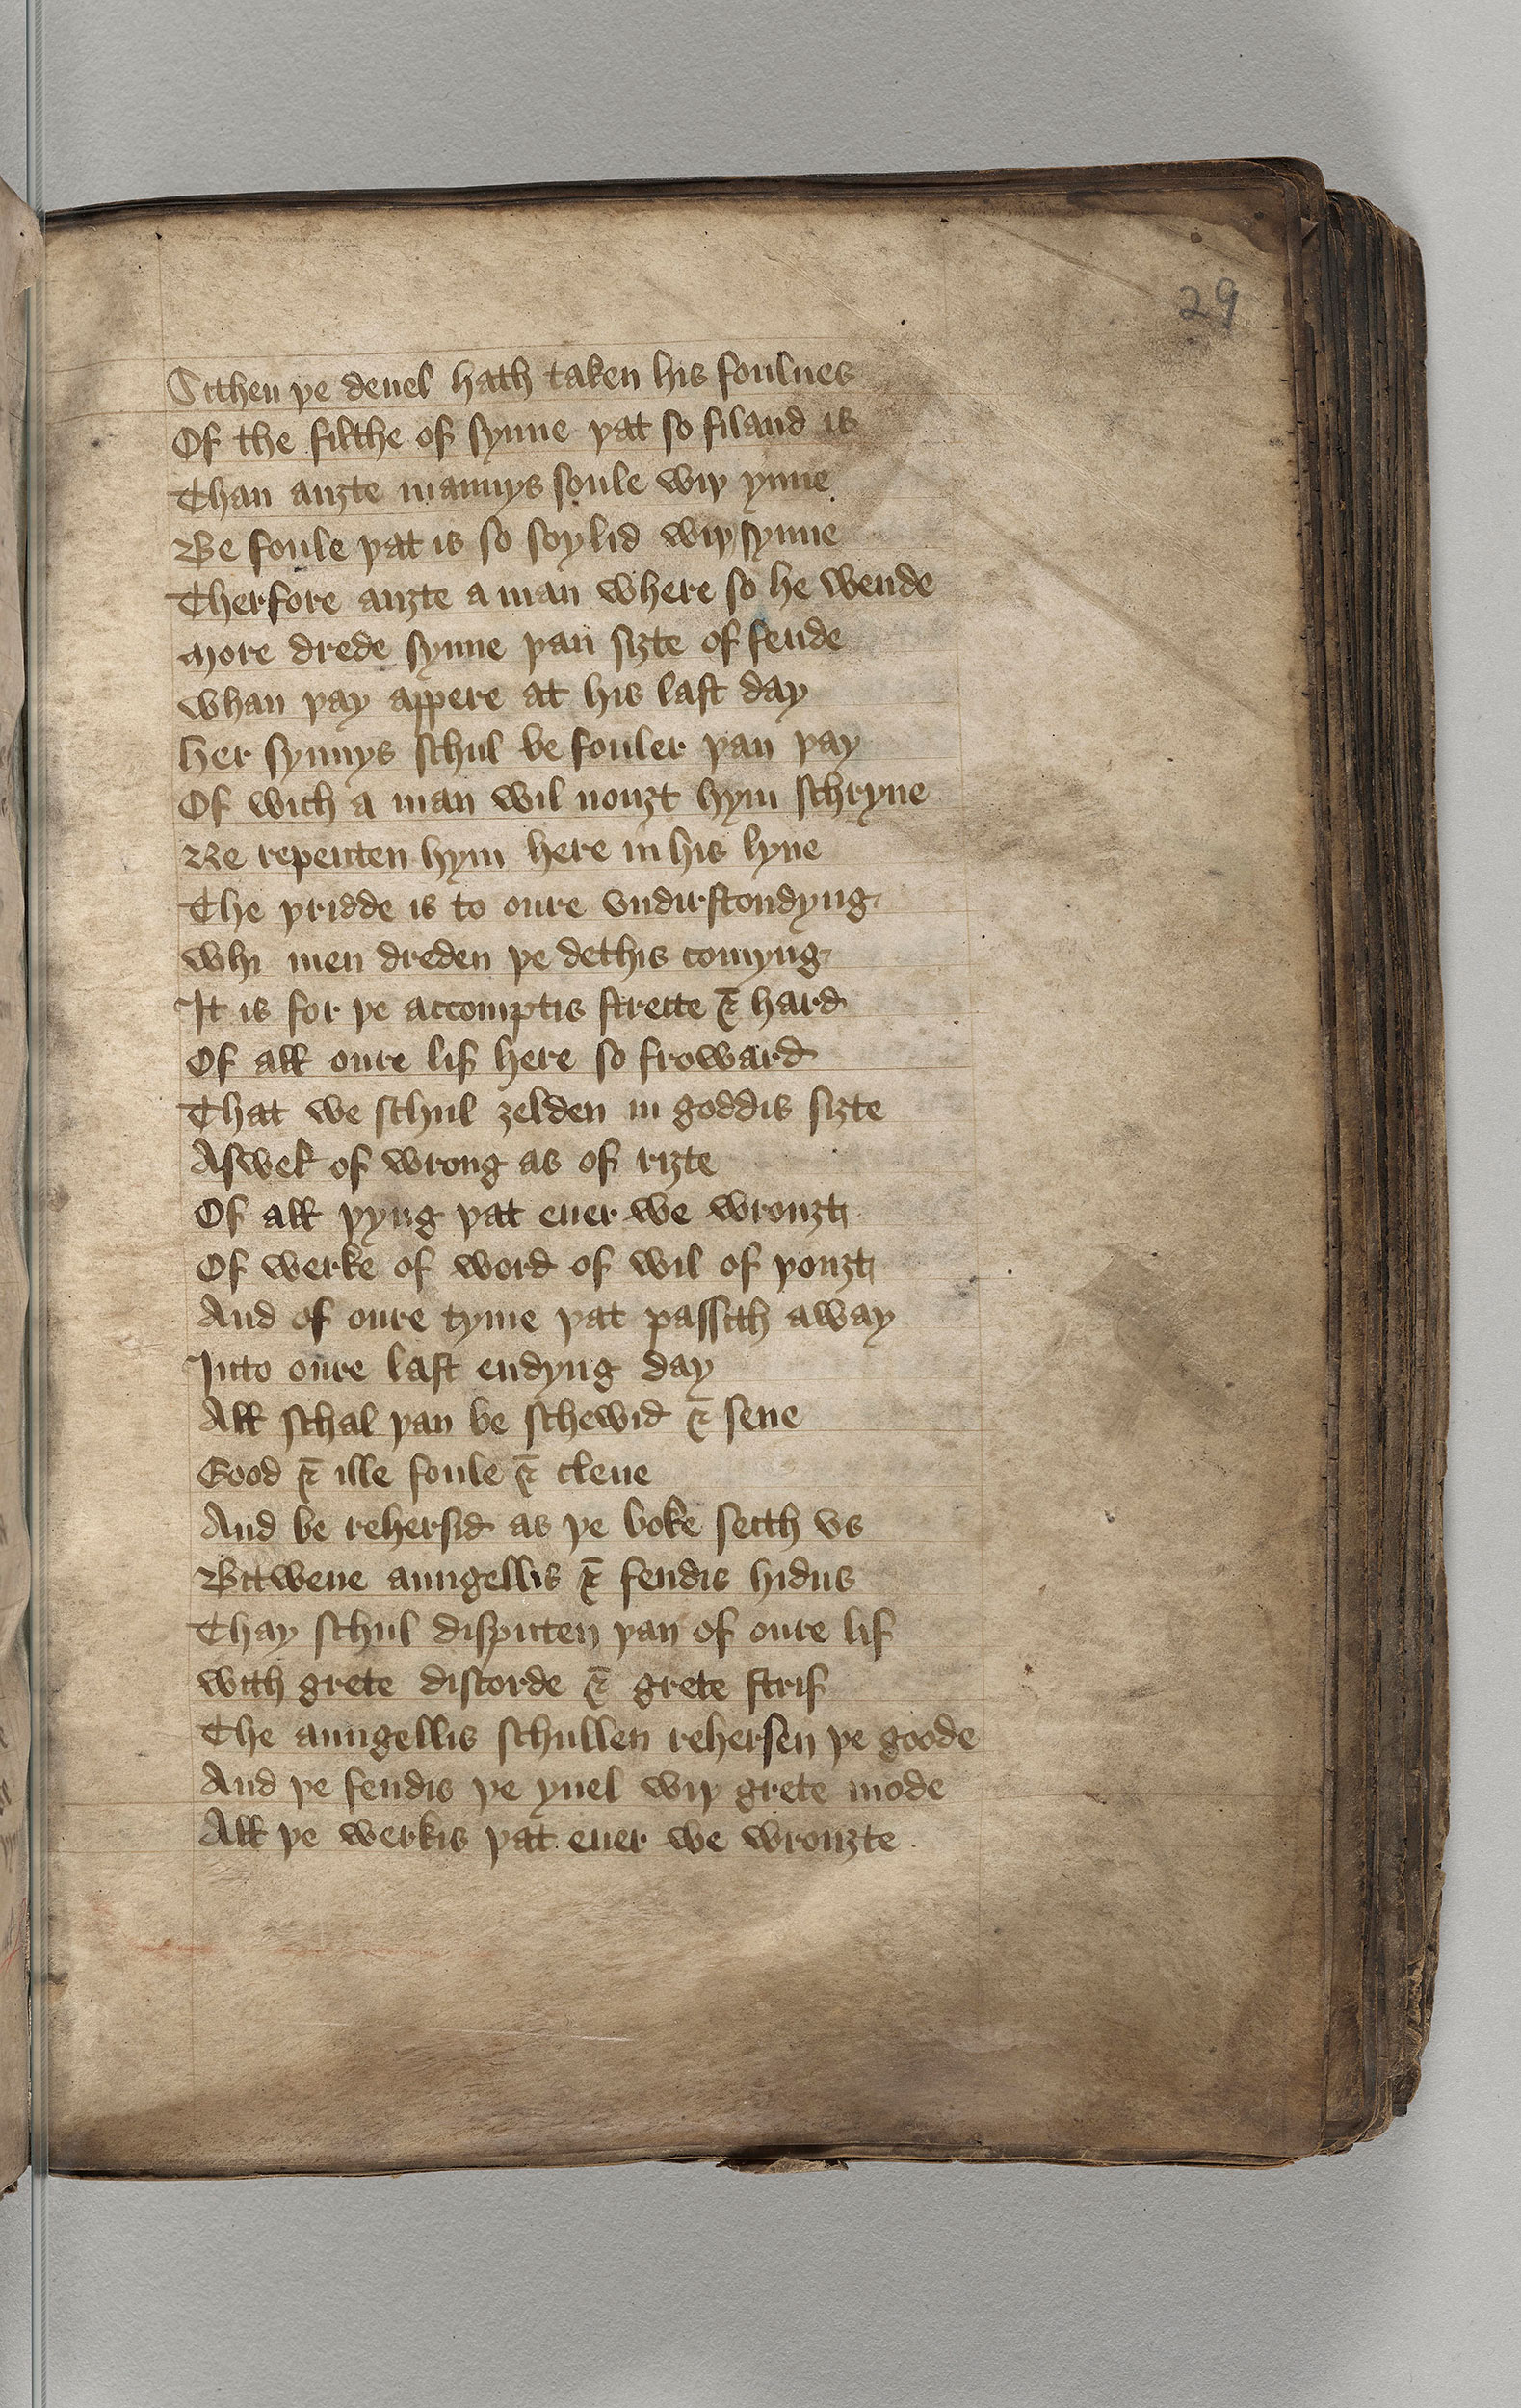 29
Sithen þe deuel hath taken his foulnes
Of the filthe of synne þat so filand is
Than auȝte mannys soule wiþ ynne
Be foule þat is so soylid wiþ synne
Therfore auȝte a man where so he wende
More drede synne þan siȝte of fende
Whan þay appere at his last day
Her synnys schul be fouler þan þay
Of wich a man wil nouȝt hym schryue
Ne repenten hym here in his lyue
The þridde is to oure vndirstondyng
Whi men dreden þe dethis comyng
It is for þe accomptis streite & hard
Of all oure lif here so froward
That we schul ȝelden in goddis siȝte
Aswel of wrong as of riȝte
Of all þyng þat euer we wrouȝt
Of werke of word of wil of þouȝt
And of oure tyme þat passith away
Into oure last endyng day
All schal þan be schewid & sene
Good & ille foule & clene
And be rehersid as þe boke seith vs
Bitwene aungellis & fendis hidus
Thay schul disputen þan of oure lif
With grete discorde & grete strif
The aungellis schullen rehersen þe goode
And þe fendis þe yuel wiþ grete mode
All þe werkis þat euer we wrouȝte